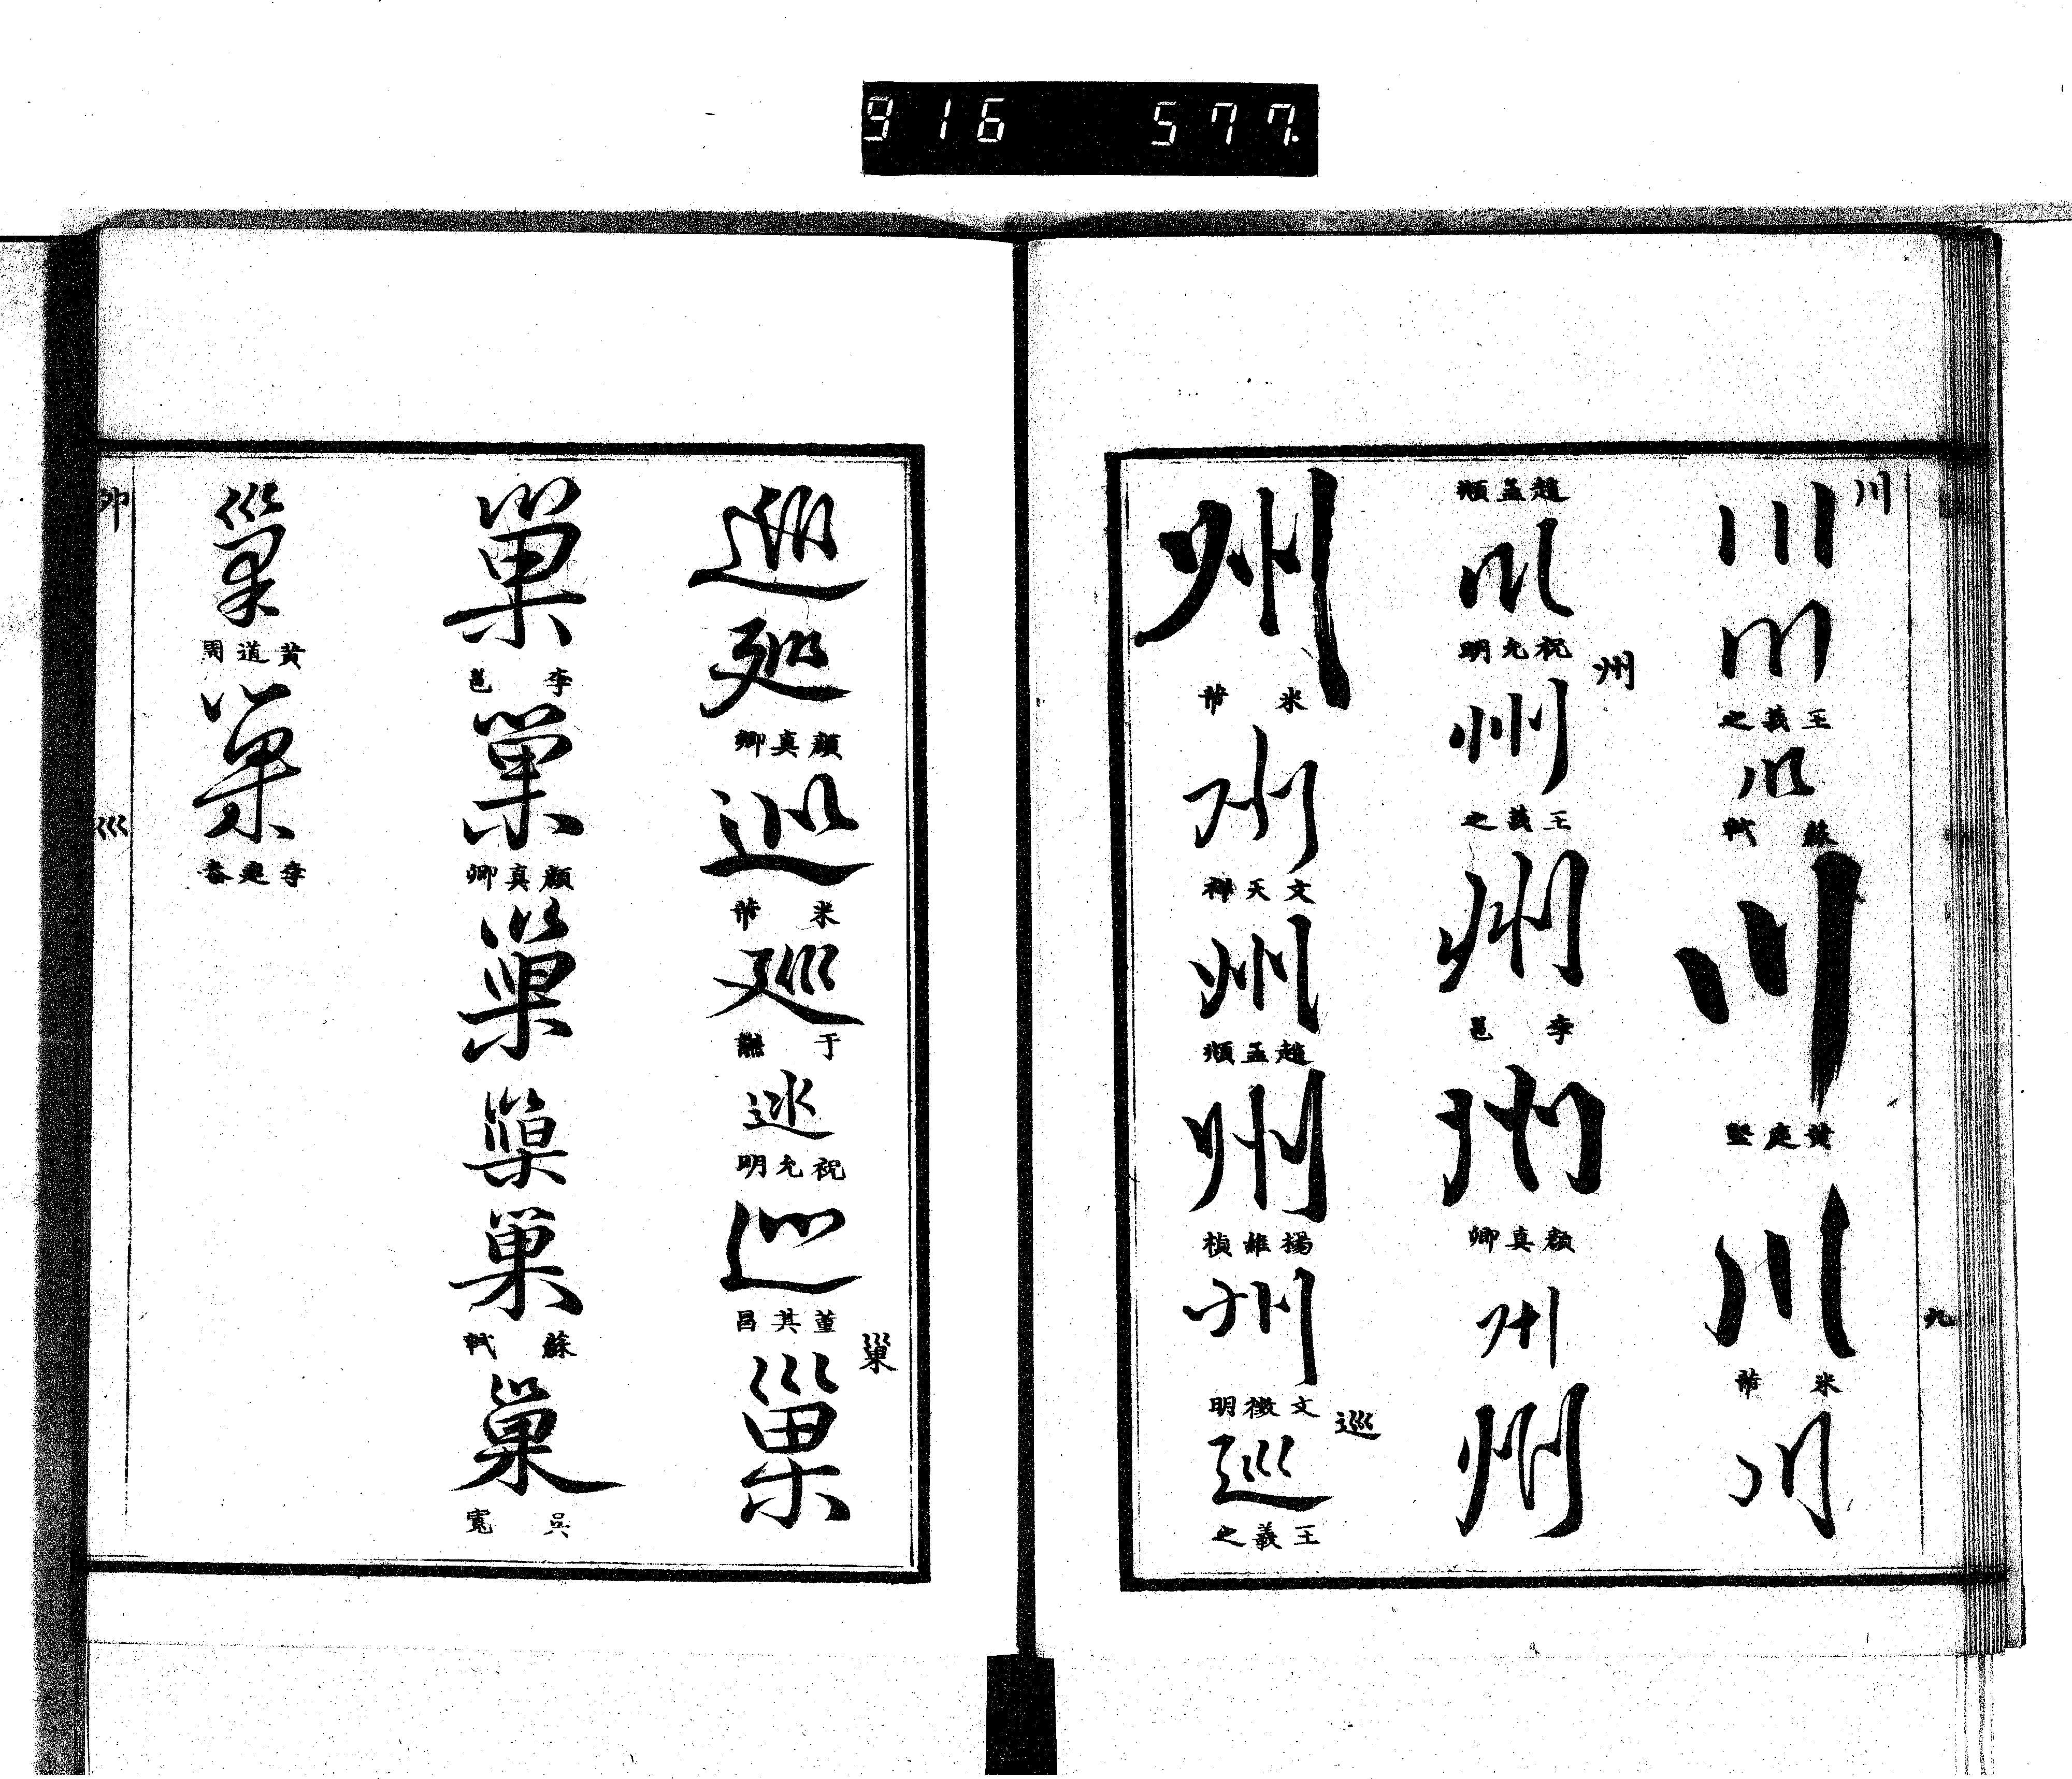 916 577.
川
川
川
王羲之
川
蘇軾
川
黃庭堅
川
米芾
川
趙孟頫
川
祝允明
州
州
王羲之
州
李邕
州
顏真卿
州
州
州
米芾
州
文天祥
州
趙孟頫
州
楊維楨
州
文徵明
巡
巡
王羲之
九
巡
巡
顏真卿
巡
米芾
巡
于
巡
祝允明
巡
董其昌
巢
巢
巢
李邕
巢
顏真卿
巢
巢
巢
蘇軾
巢
吳寬
巢
黃道周
巢
卯
巛